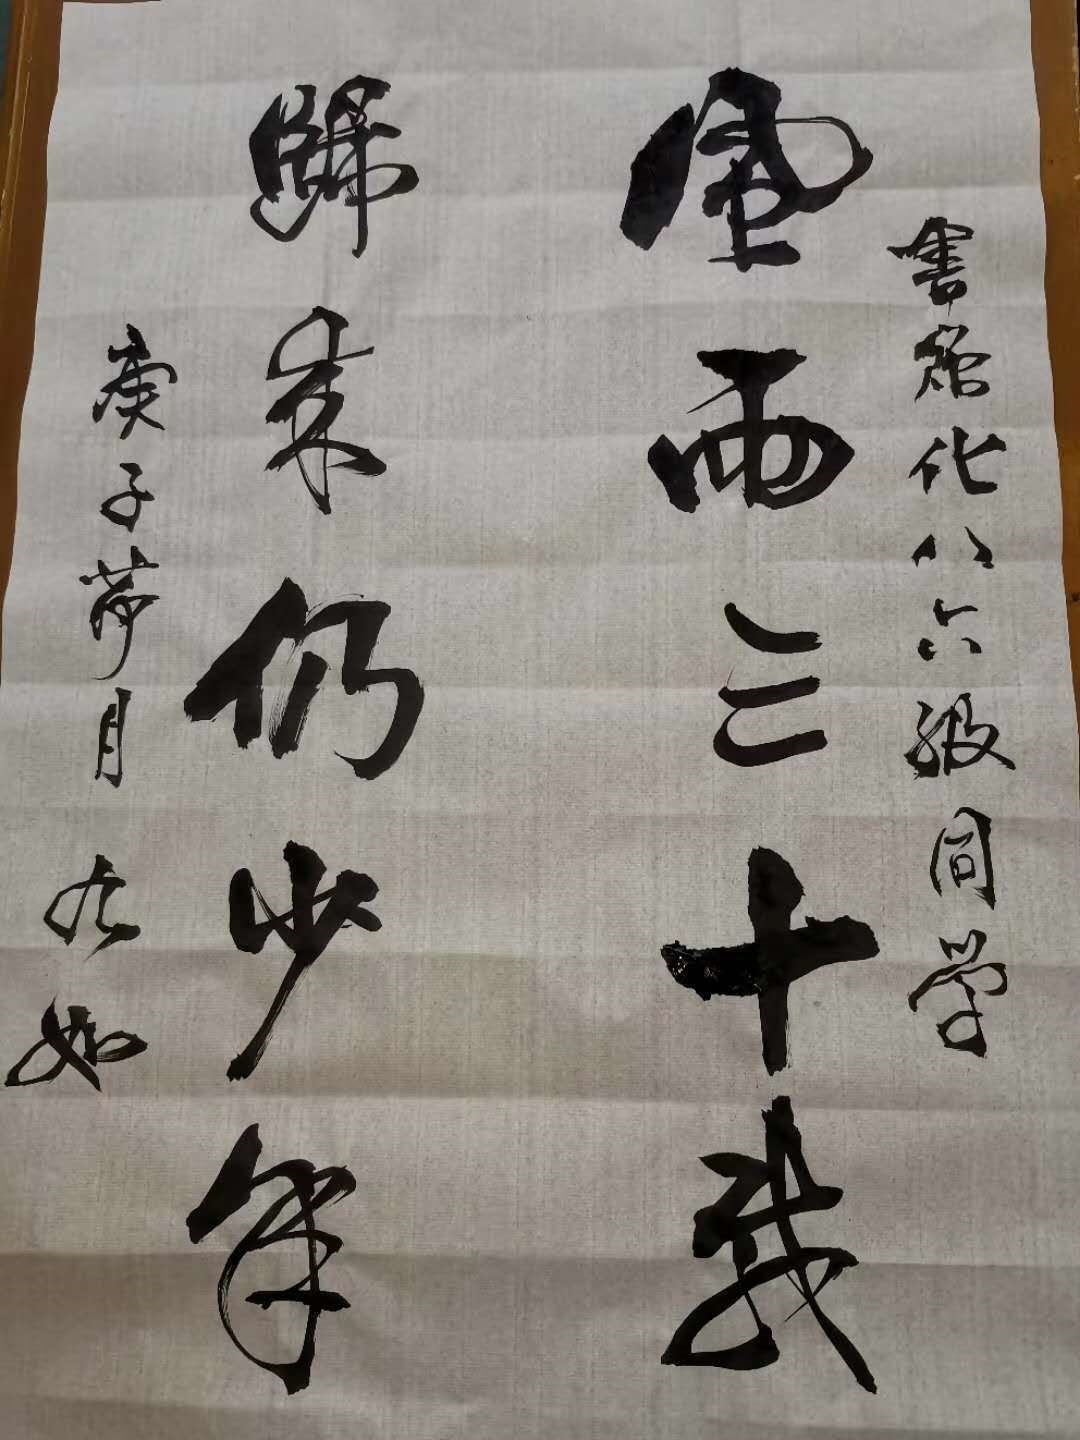 書館化八六级同学
風雨三十載
歸来仍少年
庚子荷月 九如